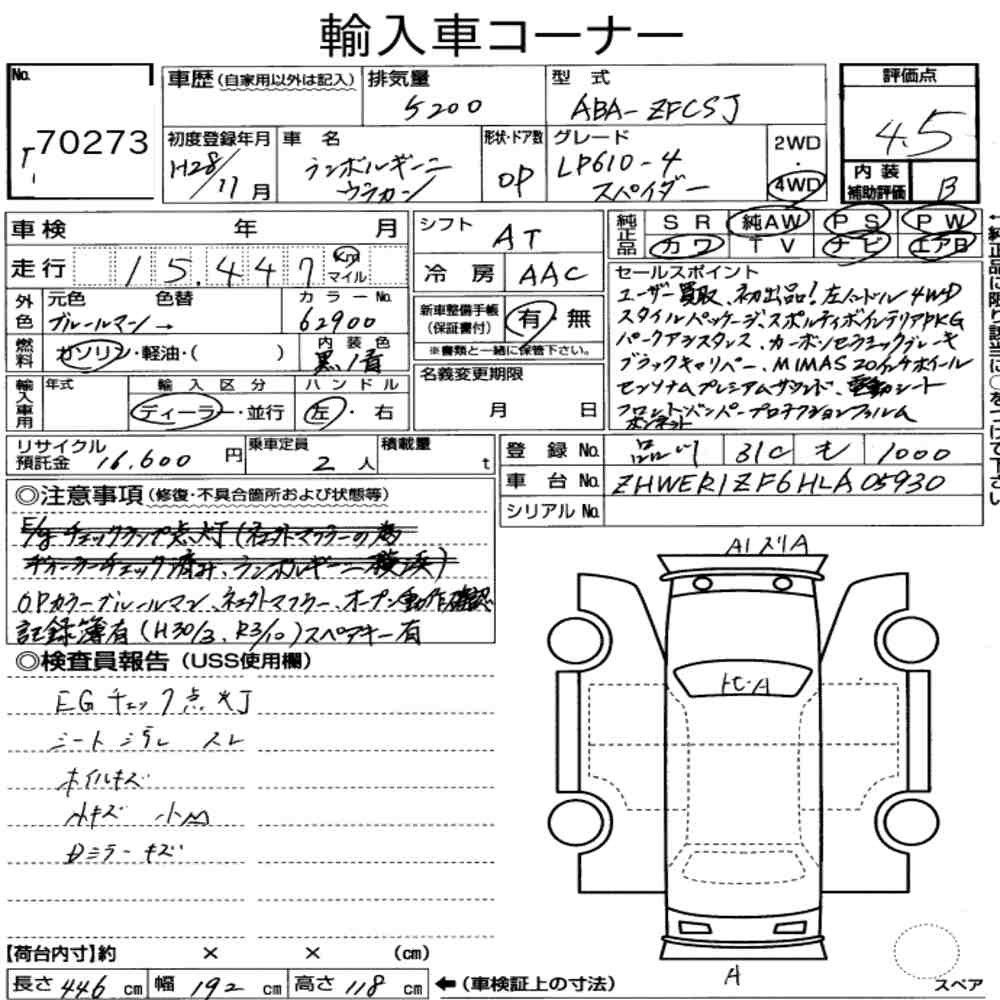 輸入車コーナー
No.
70273
車歴 (自家用以外は記入)
排気量
5200
型式
ABA-ZFCSJ
評価点
4.5
初度登録年月
H28/11月
車名
ランボルギーニ
ウラカン
形状・ドア数
OP
グレード
LP610-4
スペイダー
2WD
・
4WD
内装
補助評価
B
車検 年 月
走行 15,447 Km マイル
シフト AT
冷房 AAC
純正品 SR 純AW PS PW
カワ TV ナビ エアB
外色 元色 色替 カラーNo.
ブルールマン→ 62900
新車整備手帳
(保証書付)
有・無
※書類と一緒に保管下さい。
燃料 ガソリン・軽油・( )
内装色
黒/青
名義変更期限
月 日
輸入車用 年式 輸入区分 ハンドル
ディーラー・並行 左・右
セールスポイント
ユーザー買取、初出品!左ハンドル4WD
スタイルパッケージ、スポルティボインテリアPKG
パークアシスタンス、カーボンセラミックブレーキ
ブラックキャリパー、MIMAS 20インチホイール
センソナムプレミアムサウンド、電動シート
フロントバンパープロテクションフィルム
ボンネット
←純正品に限り該当に○をつけて下さい
リサイクル
預託金 16,600 円
乗車定員
2人
積載量
t
登録No. 品川 31C も 1000
車台No. ZHWER1ZF6HLA05930
シリアルNo.
◎注意事項 (修復・不具合箇所および状態等)
E/gチェックランプ点灯(ネクストマフラーの為
ディーラーチェック済み、ランボルギーニ横浜)
OPカラーブルールマン、ネクストマフラー、オープン動作確認
記録簿有(H30/3、R3/10)スペアキー有
◎検査員報告 (USS使用欄)
EGチェック点灯
シートシミ スレ
ホイルキズ
外キズ 小凹
Dミラーキズ
A1スリA
トビ・A
A
【荷台内寸】約 × × (cm)
長さ446cm 幅192cm 高さ118cm ←(車検証上の寸法)
スペア